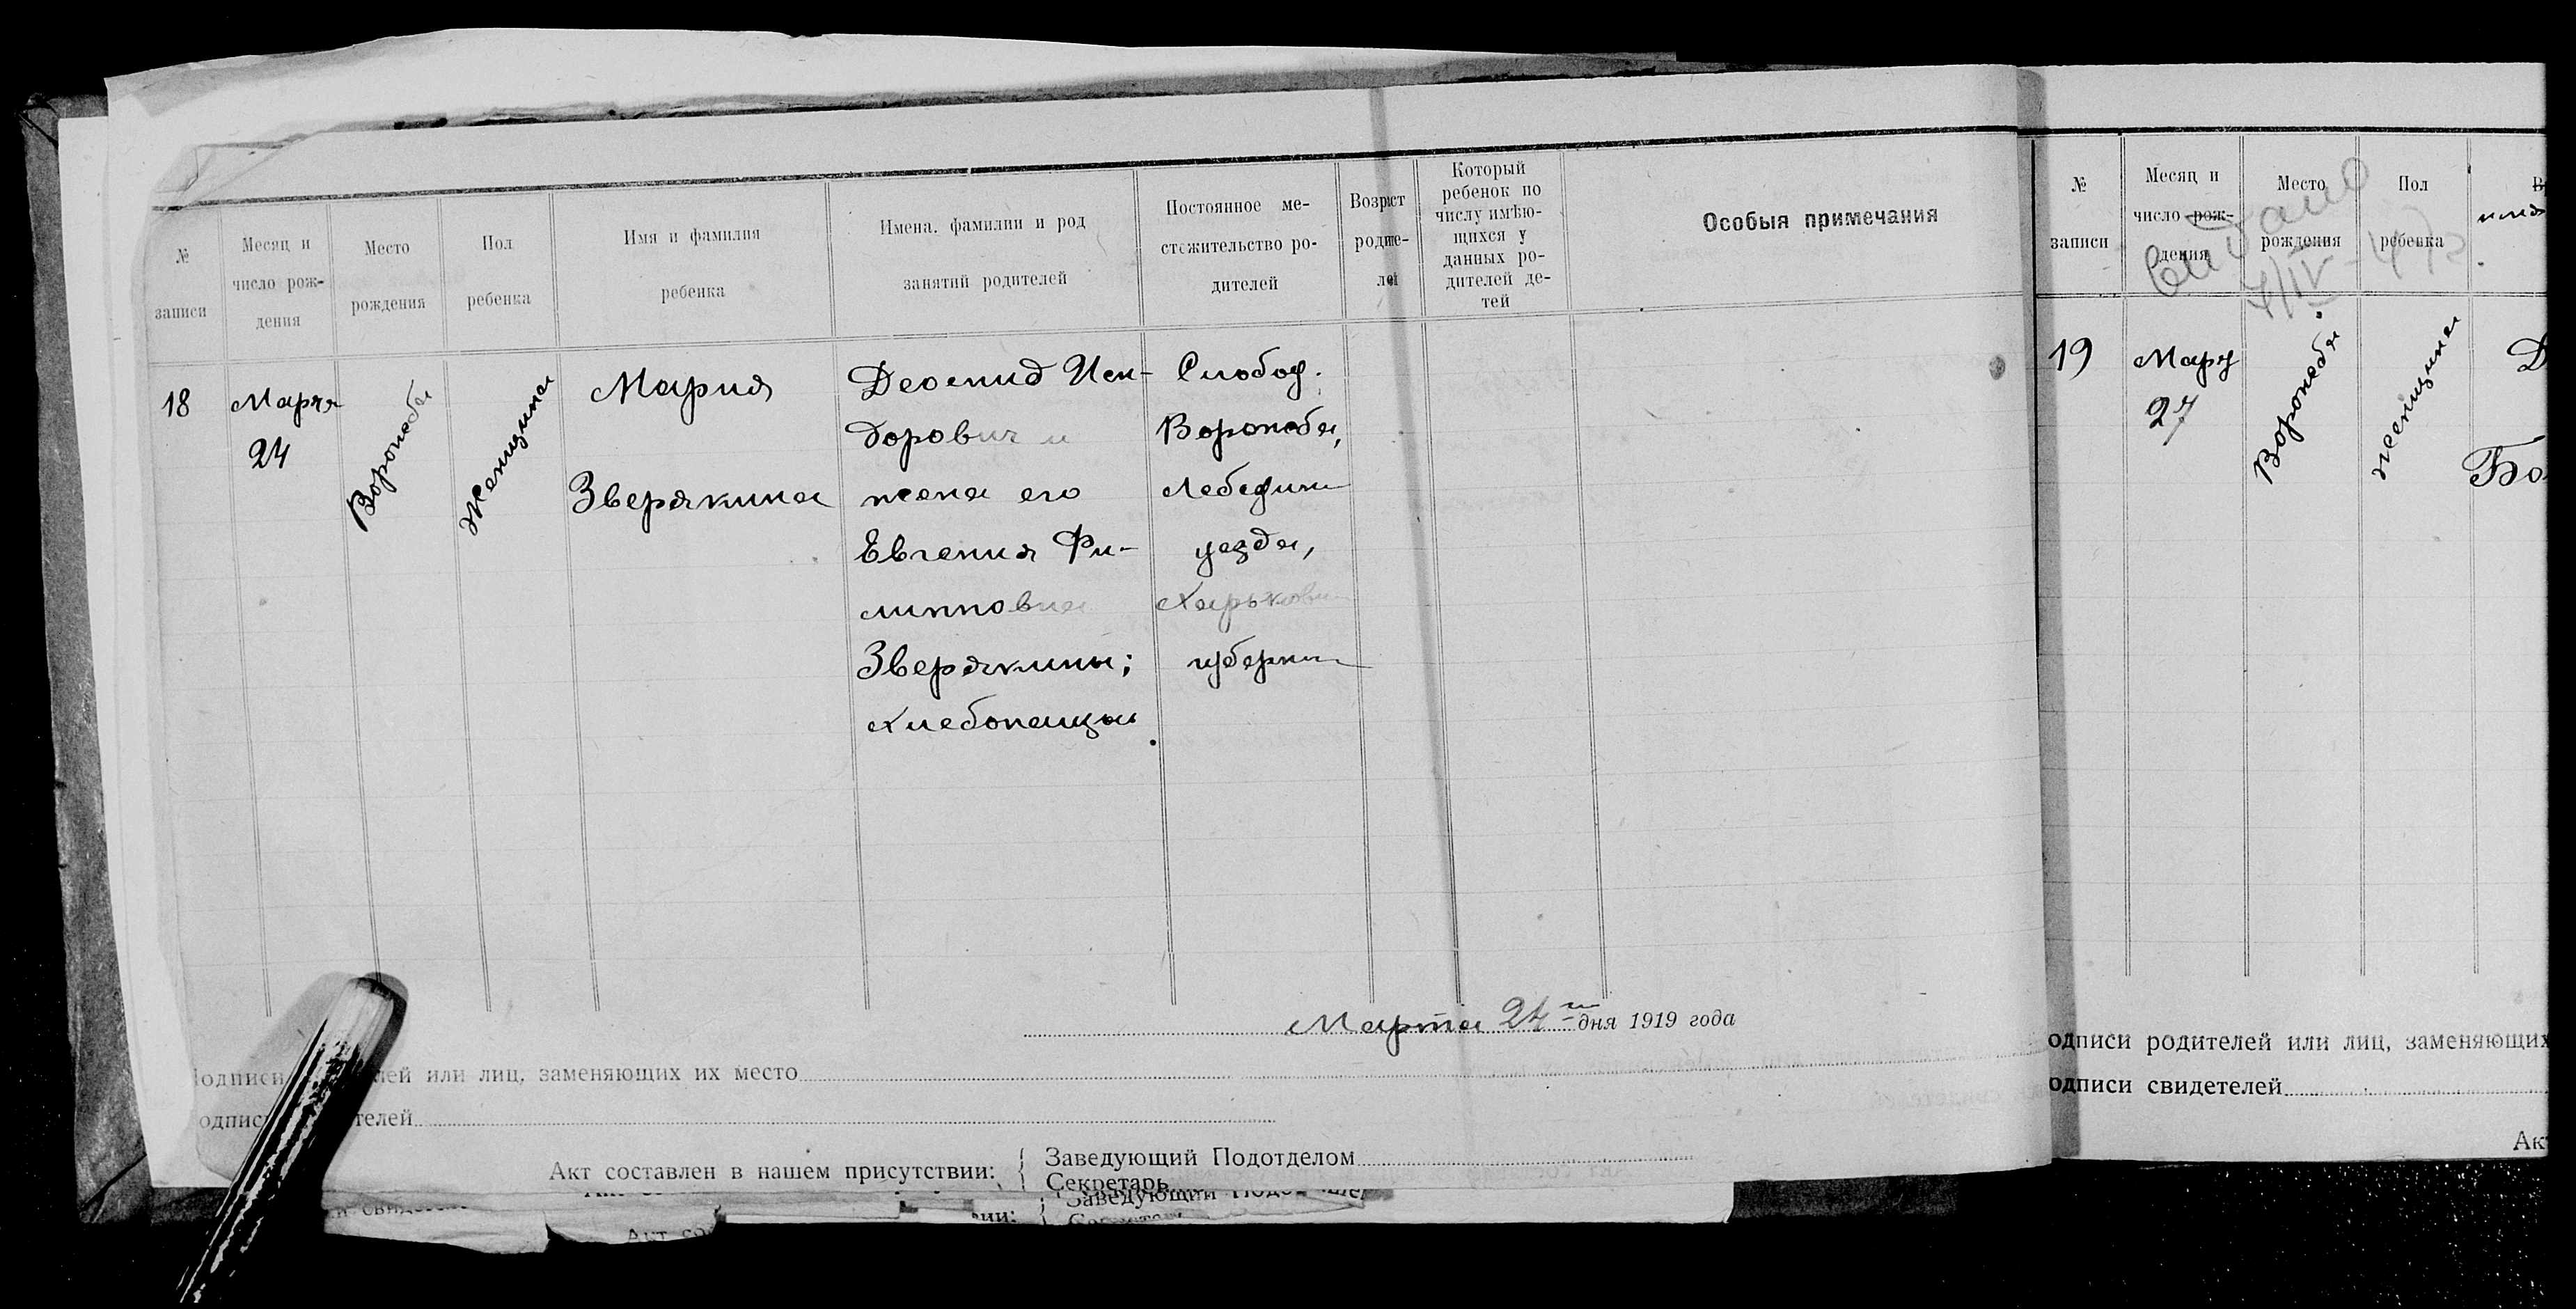 №
записи
Месяц и
число рож-
дения
Место
рождения
Пол
ребенка
Имя и фамилия
ребенка
Имена, фамилии и род
занятий родителей
Постоянное ме-
стожительство ро-
дителей
Возраст
родите-
лей
Который
ребенок по
числу имѣю-
щихся у
данных ро-
дителей де-
тей
Особыя примечания
18
Марта
24
Воронеба
Женщина
Мария
Зверякина
Леонид Иси-
дорович и
жена его
Евгения Фи-
липповна
Зверякины;
хлебопашцы
Слобод.
Воронеба,
Лебедин
уезда,
Харьков
губернии
Марта 24 дня 1919 года
одписи лей или лиц, заменяющих их место
одпис телей
Акт составлен в нашем присутствии:
Заведующий Подотделом
Секретарь
Заведующий
№
записи
Месяц и
число рож-
дения
Место
рождения
Пол
ребенка
19
Март
27
Воронеба
женщина
Бо
одписи родителей или лиц, заменяющих
одписи свидетелей
Ак